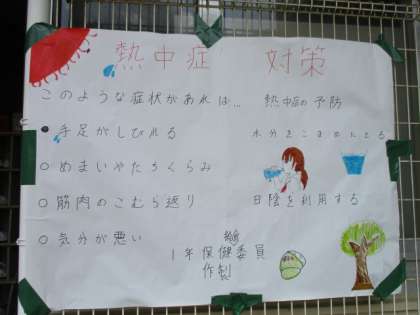 熱中症 対策
このような症状があれば…
手足がしびれる
めまいやたちくらみ
筋肉のこむら返り
気分が悪い
熱中症の予防
水分をこまめにとる
日陰を利用する
1年保健委員
作製